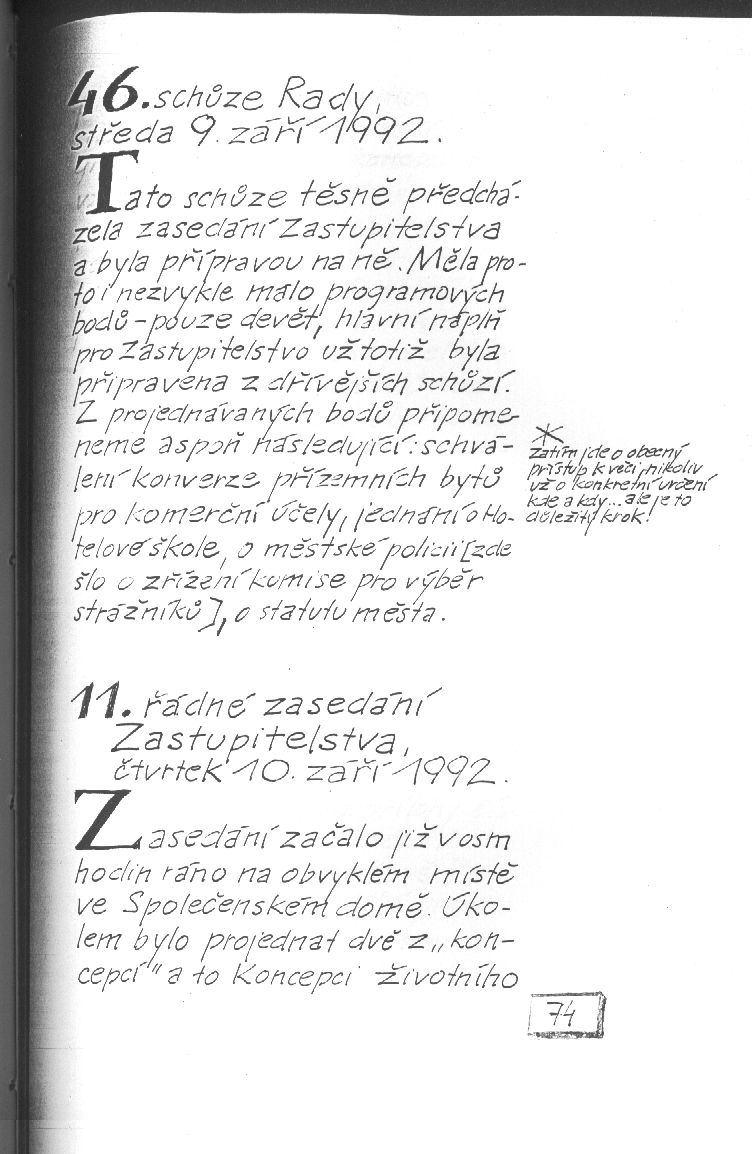 46. schůze Rady,
středa 9. září 1992.
Tato schůze těsně předchá-
zela zasedání Zastupitelstva
a byla přípravou na ně. Měla pro-
to i nezvykle málo programových
bodů - pouze devět, hlavní náplň
pro Zastupitelstvo už totiž byla
připravena z dřívějších schůzí.
Z projednávaných bodů připome-
neme aspoň následující: schvá-
lení konverze přízemních bytů
pro komerční účely, jednání o Ho-
telové škole, o městské policii [zde
šlo o zřízení komise pro výběr
strážníků], o statutu města.
*
Zatím jde o obecný
přístup k věci, nikoliv
už o konkretní určení
kde a kdy... ale je to
důležitý krok!
11. řádné zasedání
Zastupitelstva,
čtvrtek 10. září 1992.
Zasedání začalo již v osm
hodin ráno na obvyklém místě
ve Společenském domě. Úko-
lem bylo projednat dvě z „kon-
cepcí" a to Koncepci životního
74